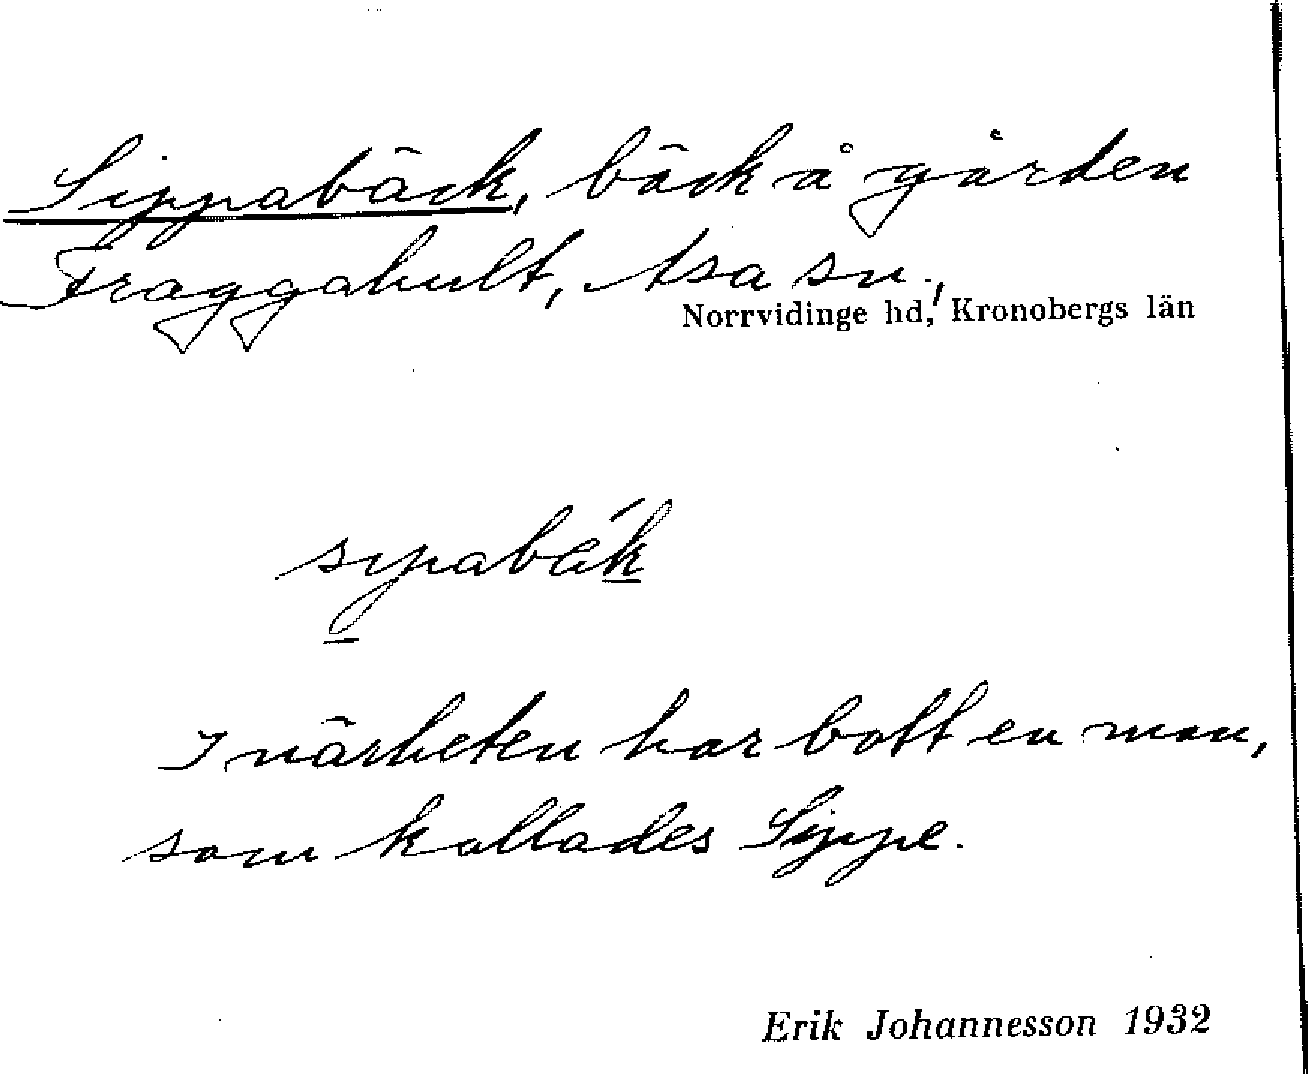 Sippabäck, bäck å gården
Fraggahult, Asa sn.,
Norrvidinge hd, Kronobergs län
I närheten har bott en man,
som kallades Sippe.
Erik Johannesson 1932